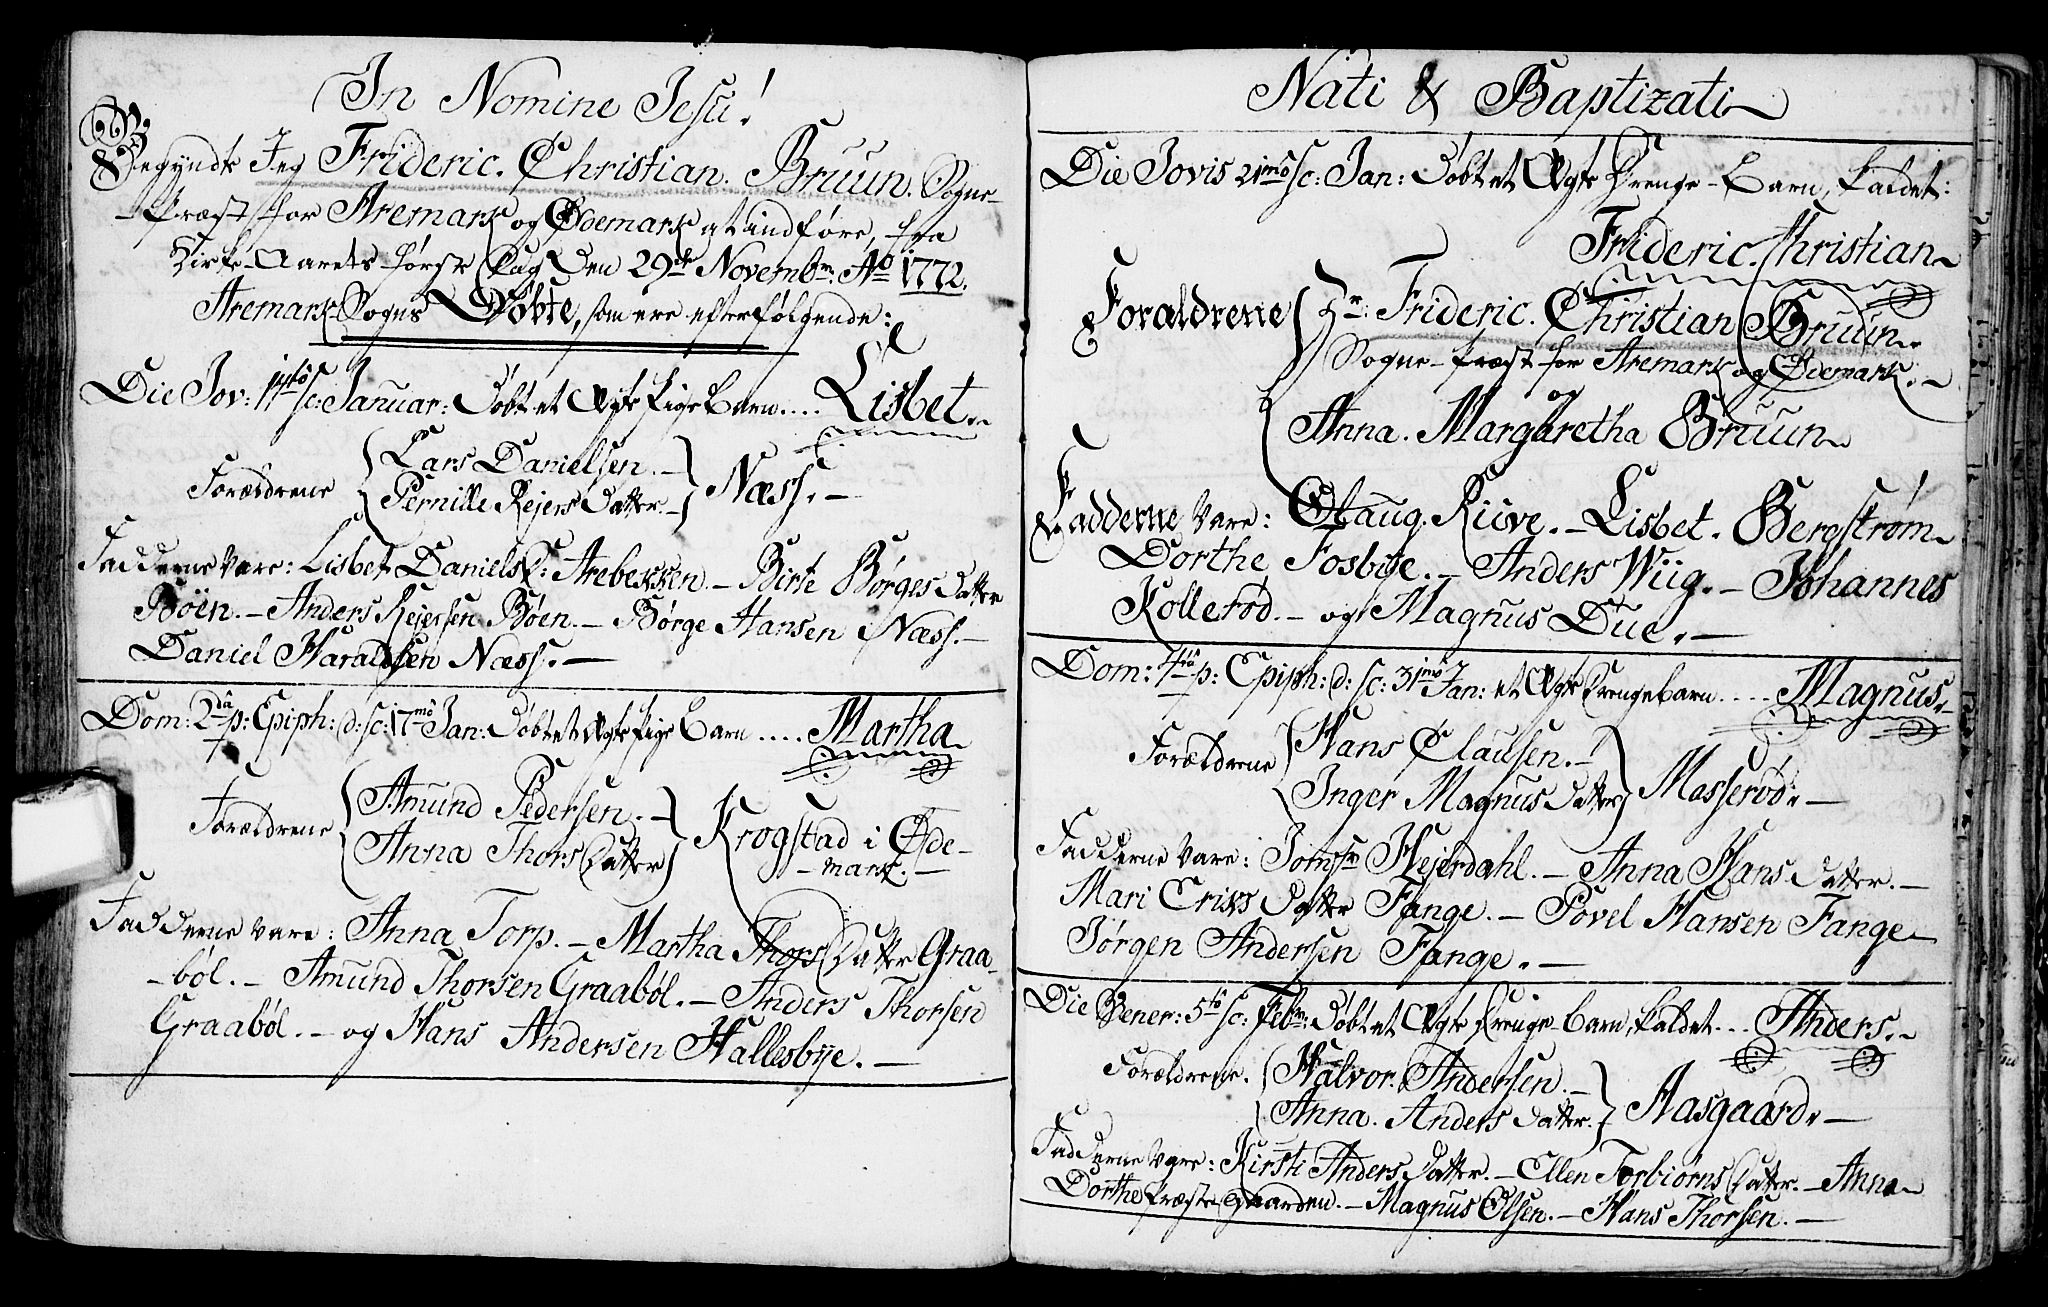 In Nomine Jesu!
Begyndte Jeg Frideric. Christian. Bruun. Sogne-
-Præst for Aremark og Ødemark at indføre, fra
Kirke-Aarets første Dag Den 29de Novembr: Ao 1772.
Aremark-Sogns Døbte, som ere efterfølgende:
Die Jov: 14to sc: Januar: Døbt et Ægte Pige Barn .... Lisbet.
Forældrene { Lars Danielsen. -
Pernille Rejers Datter. - } Næss. -
Fadderne vare: Lisbet Danielsd: Arebekken. - Birte Børges Datter
Böen. - Anders Rejersen Böen. - Børge Hansen Næss. -
Daniel Haraldsen Næss. -
Dom: 2dâ p: Epiph: d: sc: 17mô Jan: Döbt et Ægte Pige Barn .... Martha
Forældrene { Amund Pedersen. -
Anna Thors Datter } Krogstad i Øde-
-mark. -
Fadderne vare: Anna Torp. - Martha Thors Datter Graa-
-böl. - Amund Thorsen Graaböl. - Anders Thorsen
Graaböl. - og Hans Andersen Hallesbÿe. -
Nati & Baptizati
Die Jovis 21mô sc: Jan: Döbt et Ægte Drenge-Barn, kaldet:
Frideric. Christian
Forældrene { Hr: Frideric. Christian Bruun.
Sogne-Præst for Aremark og Ødemark. -
og
Anna. Margaretha Bruun
Fadderne vare: Olaug. Riive. - Lisbet. Bergstrøm
Dorthe Fosbÿe. - Anders Wiig. - Johannes
Kolleröd. - og Magnus Due. -
Dom: 4tâ p: Epiph: d: sc: 31mô Jan: et Ægte Drengebarn .... Magnus.
Forældrene { Hans Clausen. -
Inger Magnus Datter } Masserød. -
Fadderne vare: Jomfr Hejerdahl. - Anna Hans Datter. -
Mari Eriks Datter Fange. - Povel Hansen Fange
Jørgen Andersen Fange. -
Die Vener: 5tô sc: Febr: Döbt et Ægte Drenge-Barn, kaldet ... Anders.
Forældrene. { Halvor. Andersen. -
Anna. Anders Datter. } Aasgaard. -
Fadderne vare: Kirsti Anders Datter. - Ellen Torbiörns Datter. - Anna
Dorthe Præste-gaarden. - Magnus Olsen. - Hans Thorsen. -